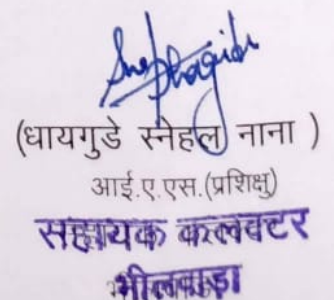 (धायगुडे स्नेहल नाना )
आई.ए.एस.(प्रशिक्षु)
सहायक कलक्टर
भीलवाड़ा